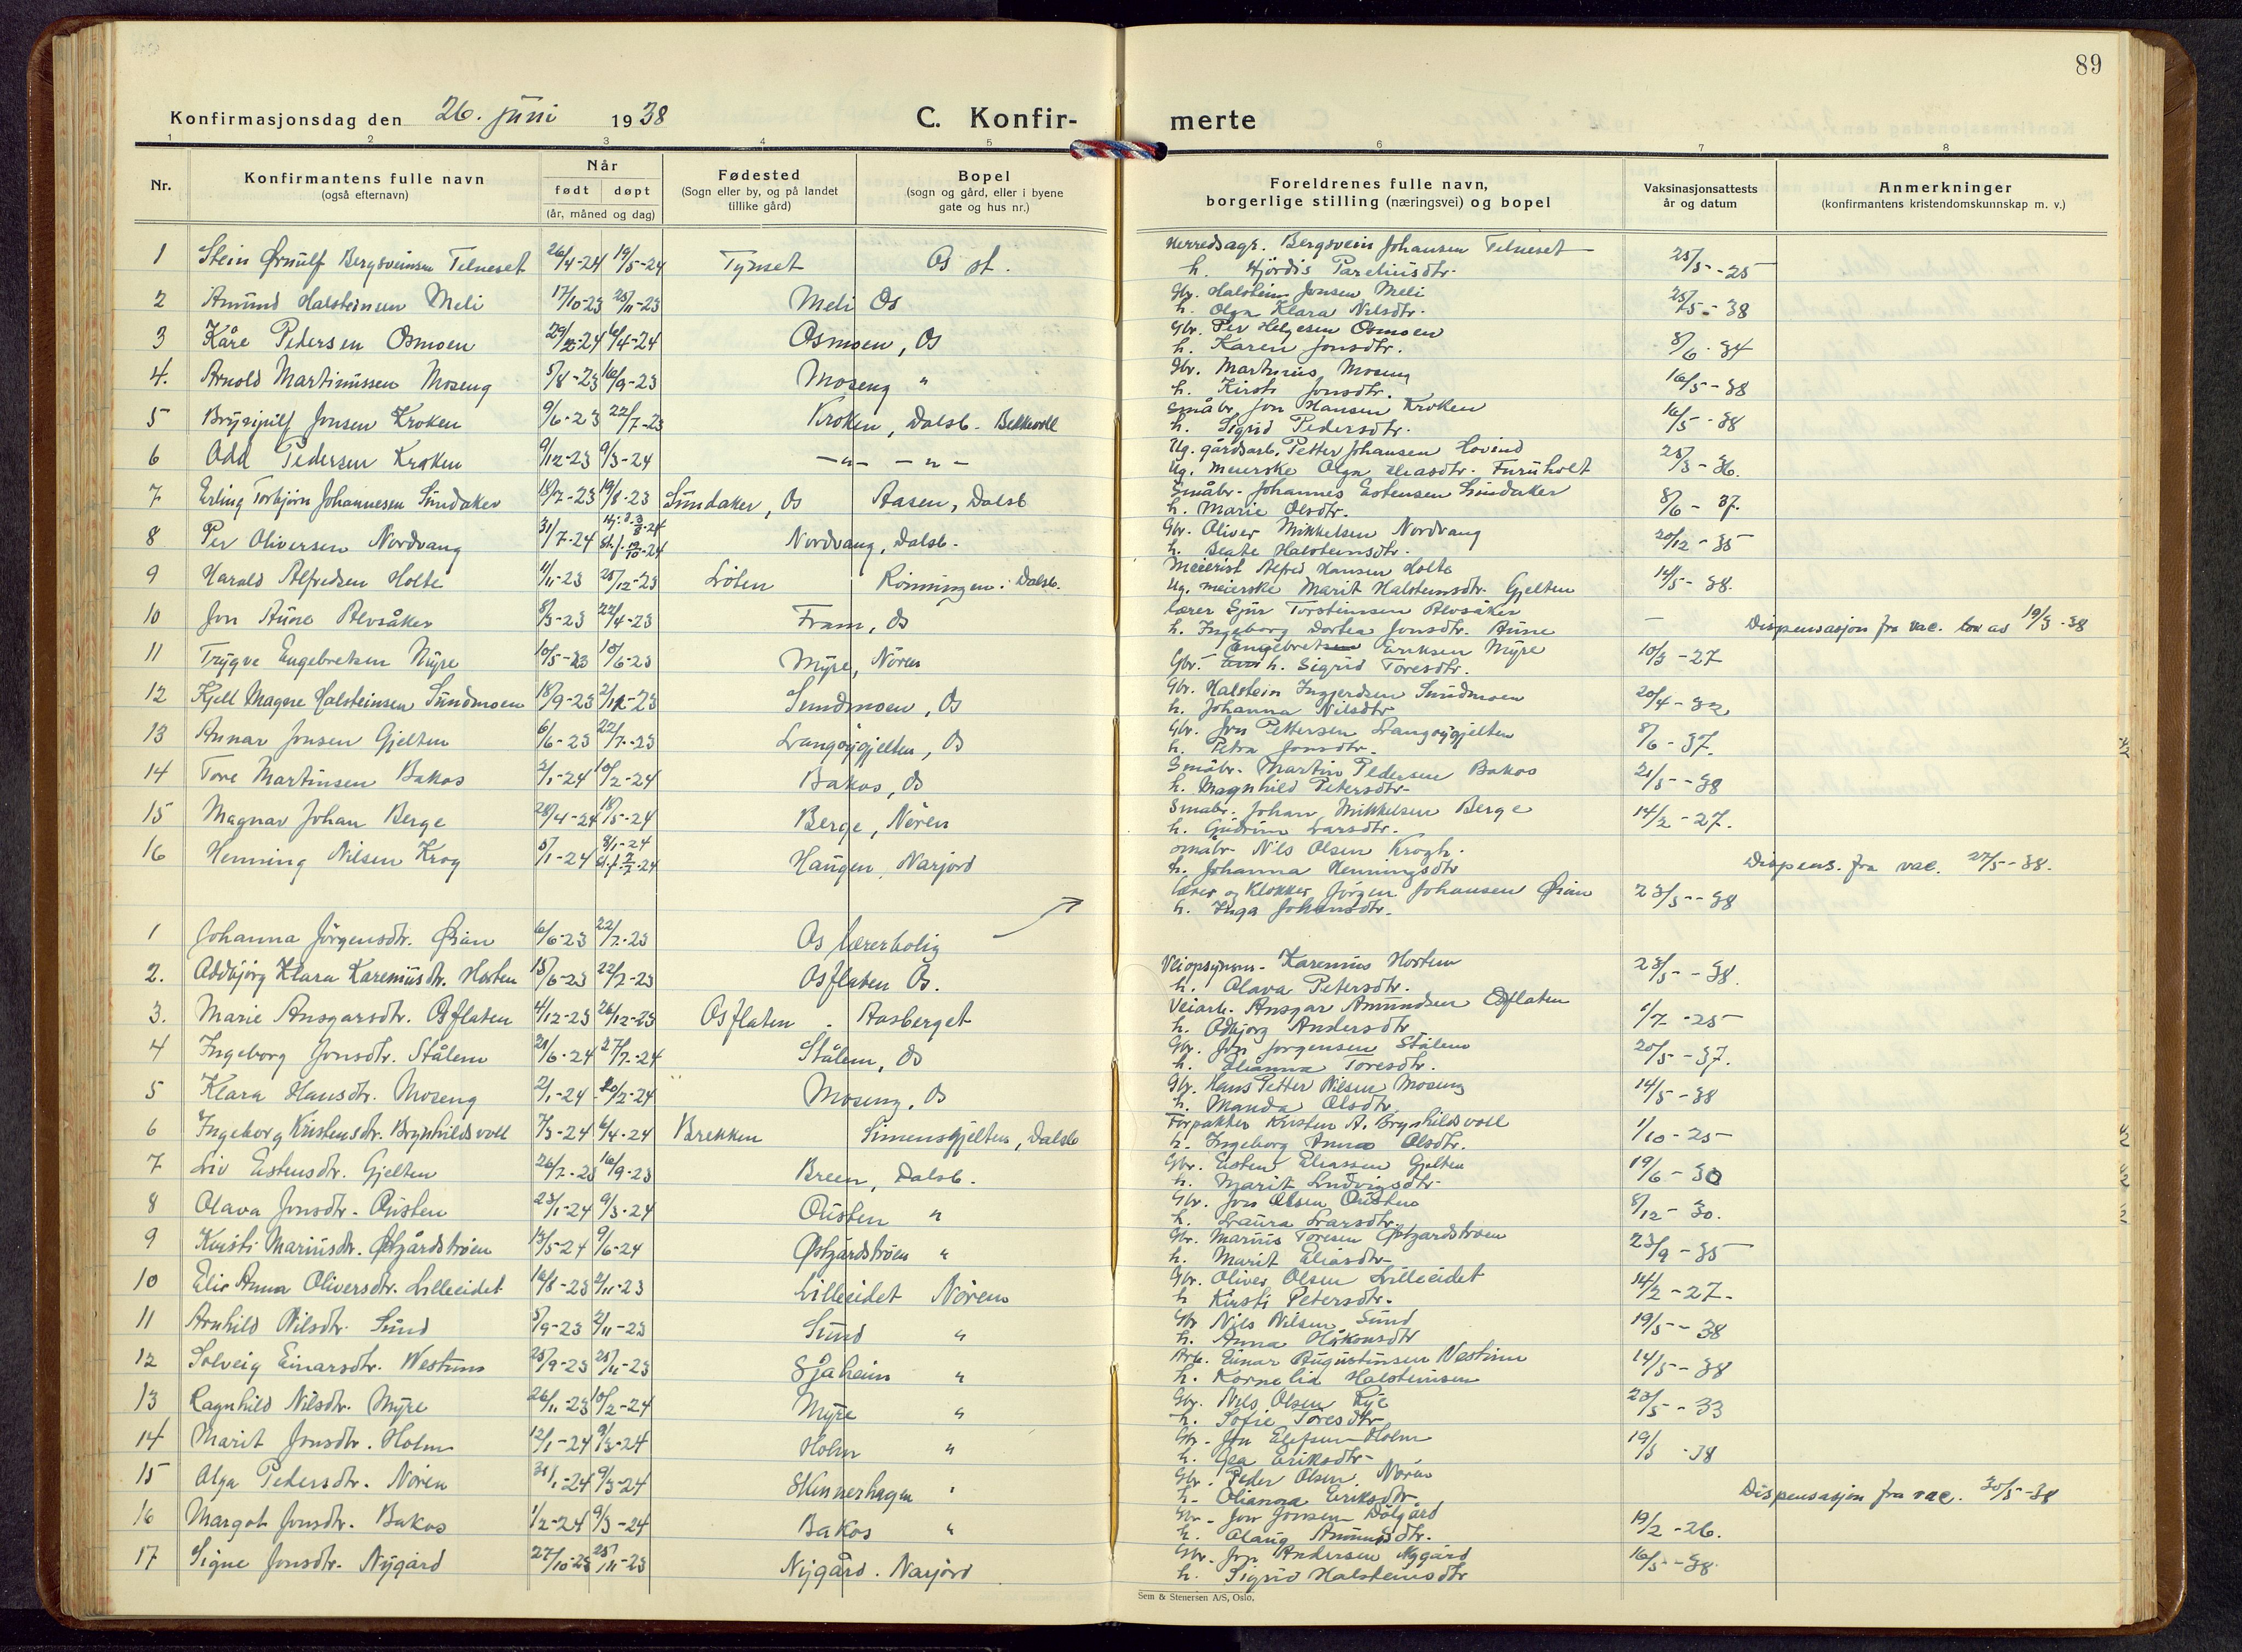 89
Konfirmasjonsdag den 26. juni 1938
C. Konfir-
merte
1 2 3 4 5 6 7 8
Nr.
Konfirmantens fulle navn
(også efternavn)
Når
født døpt
(år, måned og dag)
Fødested
(Sogn eller by, og på landet
tillike gård)
Bopel
(sogn og gård, eller i byene
gate og hus nr.)
Foreldrenes fulle navn,
borgerlige stilling (næringsvei) og bopel
Vaksinasjonsattests
år og datum
Anmerkninger
(konfirmantens kristendomskunnskap m. v.)
1 Stein Ørnulf Bergsveinsen Telneset 26/4-24 19/5-24 Tynset Os st.
Herredsagr. Bergsvein Johansen Telneset
h. Hjördis Pareliusdtr. 25/5-25
2 Amund Halsteinsen Meli 17/10-23 25/11-23 Meli Os
Gbr. Halstein Jonsen Meli
h. Olga Klara Nilsdtr. 25/5-38
3 Kåre Pedersen Osmoen 29/2-24 6/4-24 Osmoen, Os
Gbr. Per Helgesen Osmoen
h. Karen Jonsdtr. 8/6-34
4. Arnold Martinussen Moseng 5/8-23 16/9-23 Moseng "
Gbr. Martinus Moseng
h. Kirsti Jonsdtr. 16/5-38
5 Brynjulf Jonsen Kroken 9/6-23 22/7-23 Kroken, Dalsb. Bekkevoll
Småbr. Jon Hansen Kroken
h. Sigrid Pedersdtr. 16/5-38
6 Odd Pedersen Kroken 9/12-23 9/3-24 -"- -"-
Ug. gårdsarb. Petter Johansen Hovind
Ug. meierske Olga Eliasdtr. Furuholt 25/3-36.
7 Erling Torbjörn Johannesen Sundaker 18/7-23 19/8-23 Sundaker, Os Aasen, Dalsb
Småbr. Johannes Estensen Sundaker
h. Marie Olsdtr. 8/6-37.
8 Per Oliversen Nordvang 31/7-24 hj. d. 3/8-24
st. f. 19/10-24 Nordvang, Dalsb.
Gbr. Oliver Mikkelsen Nordvang
h. Beate Halsteinsdtr. 20/12-35
9 Harald Alfredsen Holte 1/11-23 25/12-23 Löten Rönningen. Dalsb.
Meierist Alfred Hansen Holte
Ug. meierske Marit Halsteinsdtr. Gjelten 14/5-38.
10 Jon Aune Alvsåker 8/3-23 22/4-23 Fram, Os
lærer Sjur Torsteinsen Alvsåker
h. Ingeborg Dortea Jonsdtr. Aune - Dispensasjon fra vac. lov av 19/3-38
11 Trygve Engebretsen Myre 10/5-23 10/6-23 Myre, Nören
Engebret Eriksen Myre
Gbr. h. Sigrid Toresdtr. 10/3-27
12 Kjell Magne Halsteinsen Sundmoen 18/9-23 2/12-23 Sundmoen, Os
Gbr. Halstein Ingjerdsen Sundmoen
h. Johanna Nilsdtr 20/4-32
13 Annar Jonsen Gjelten 6/6-23 22/7-23 Langöygjelten, Os
Gbr. Jon Pettersen Langöygjelten
h. Petra Jonsdtr. 8/6-37.
14 Tore Martinsen Bakos 2/1-24 10/2-24 Bakos, Os
Småbr. Martin Pedersen Bakos
h. Magnhild Petersdtr- 21/5-38
15 Magnar Johan Berge 28/4-24 18/5-24 Berge, Nören
Småbr. Johan Mikkelsen Berge
h. Gudrun Larsdtr. 14/2-27.
16 Henning Nilsen Krog 5/1-24 8/1-24
st. f. 2/7-24 Haugen, Narjord
småbr. Nils Olsen Krogh.
h. Johanna Henningsdtr Dispens. fra vac. 27/5-38.
1 Johanna Jörgensdtr. Öian 6/6-23 22/7-23 Os lærerbolig
Lærer og Klokker Jörgen Johansen Öian
h. Inga Johansdtr. 23/5-38
2. Oddbjörg Klara Kareniusdtr. Horten 15/6-23 22/7-23 Osflaten Os.
Veiopsynsm. Karenius Horten
h. Olava Petersdtr. 23/5-38.
3. Marie Ansgarsdtr. Osflaten 4/12-23 26/12-23 Osflaten . Aasberget
Veiarb. Ansgar Amundsen Osflaten
h. Odbjörg Andersdtr 1/7-25
4 Ingeborg Jonsdtr. Stålem 21/6-24 27/7-24 Stålem, Os
Gbr. Jon Jorgensen Stålem
h. Elianna Toresdtr. 20/5-37.
5 Klara Hansdtr. Moseng 2/1-24 10/2-24 Moseng, Os
Gbr. Hans Petter Nilsen Moseng
h. Manda Olsdtr. 14/5-38
6 Ingeborg Kristensdtr. Brynhildsvoll 7/3-24 6/4-24 Brekken Simensgjelten, Dalsb
Forpakter Kristen A. Brynhildsvoll
h. Ingeborg Anna Olsdtr. 1/10-25
7 Liv Estensdtr. Gjelten 26/7-23 16/9-23 Breen, Dalsb.
Gbr. Esten Eliassen Gjelten
h. Marit Ludvigsdtr 19/6-30
8 Olava Jonsdtr. Ousten 23/1-24 9/3-24 Ousten "
Gbr. Jon Olsen Ousten
h. Laura Larsdtr. 8/12-30.
9 Kirsti Mariusdtr. Østgårdströen 13/5-24 9/6-24 Østgårdströen "
Gbr. Marius Toresen Østgardströen
h. Marit Eliasdtr. 23/9-35
10 Elie Anna Oliversdtr. Lilleeidet 16/8-23 2/11-23 Lilleeidet Nören
Gbr. Oliver Olsen Lilleeidet
h Kirsti Petersdtr. 14/2-27.
11 Arnhild Nilsdtr. Sund 5/9-23 2/11-23 Sund "
Gbr Nils Nilsen Sund
h. Anna Håkonsdtr 19/5-38
12 Solveig Einarsdtr. Westum 25/9-23 25/11-23 Sjåheim "
Arb. Einar Augustinsen Westum
h. Kornelia Halsteinsen 14/5-38
13 Ragnhild Nilsdtr. Myre 26/11-23 10/2-24 Myre "
Gbr. Nils Olsen Rye
h. Sofie Toresdtr 23/5-33
14 Marit Jonsdtr. Holm 12/1-24 9/3-24 Holm "
Gbr. Jon Elefsen Holm
h. Gea Eriksdtr- 19/5-38
15 Olga Pedersdtr. Nören 31/1-24 9/3-24 Skinnerhagen "
Gbr. Peder Olsen Nören
h. Olianna Eriksdtr Dispensasjon fra vac. 30/5-38
16 Margot Jonsdtr. Bakos 1/2-24 9/3-24 Bakos "
Gbr. Jon Jonsen Dölgård
h. Olaug Amundsdtr. 19/2-26.
17 Signe Jonsdtr. Nygård 27/10-23 25/11-23 Nygård. Narjord
Gbr. Jon Andersen Nygård
h. Sigrid Halsteinsdtr 16/5-38.
Sem & Stenersen A/S, Oslo.